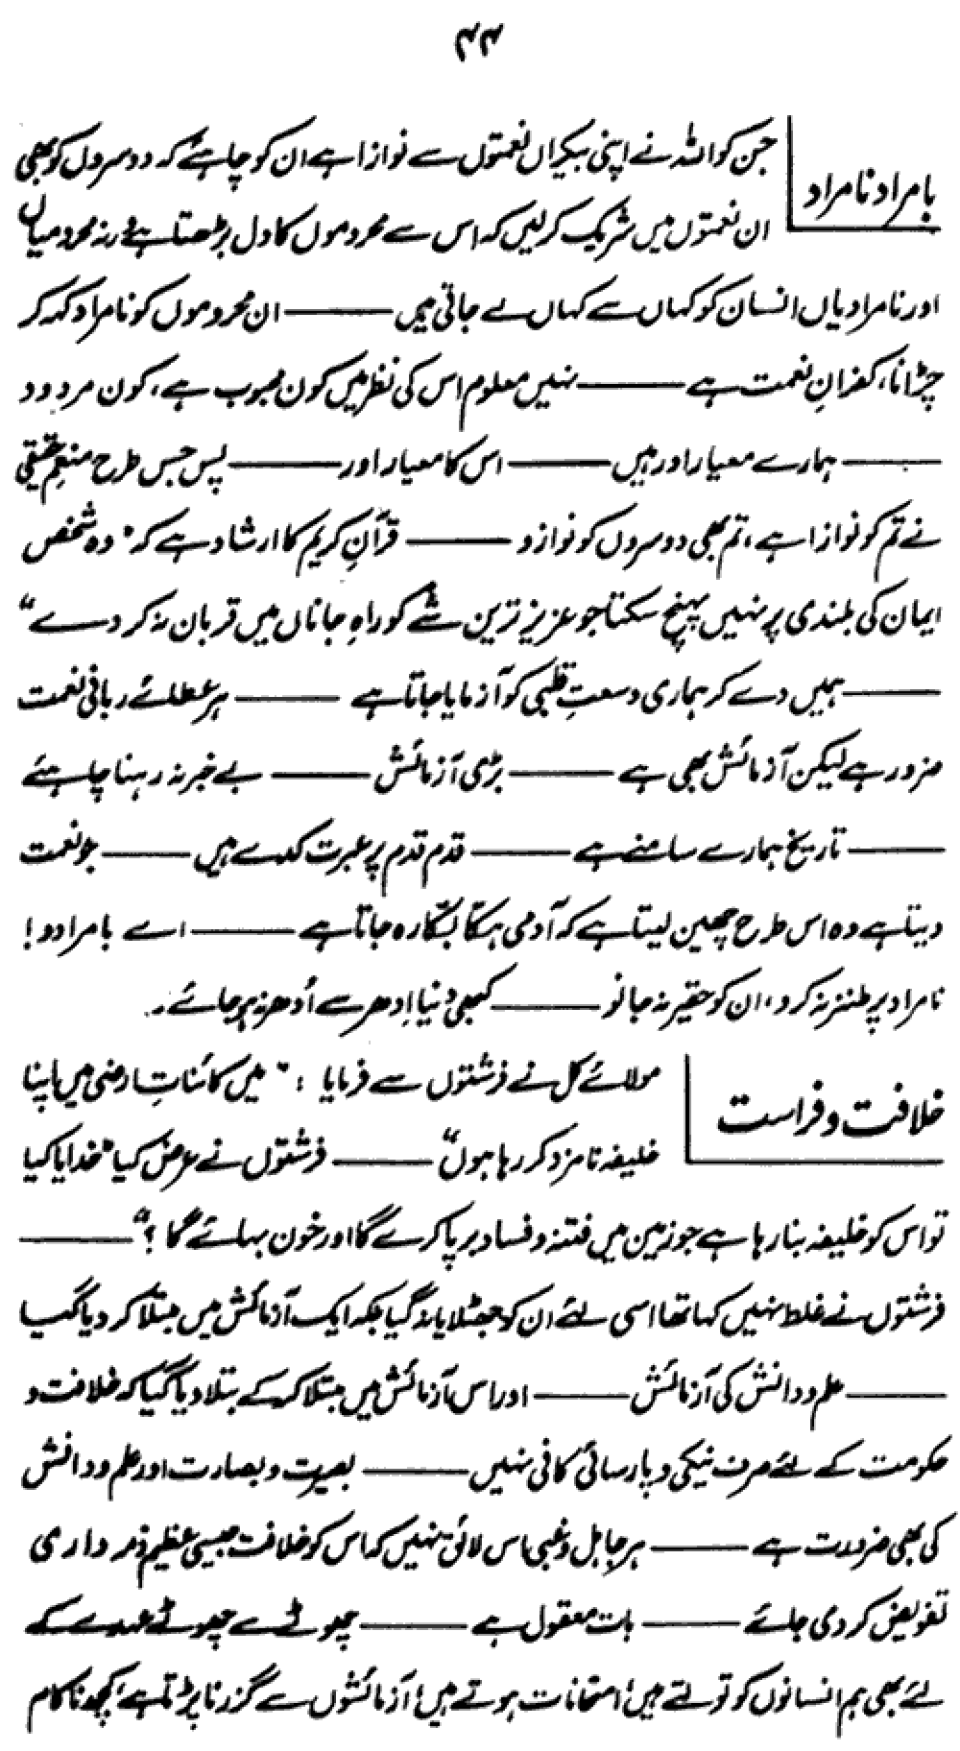 ۴۴
بامراد نامراد
جن کو اللہ نے اپنی بیکراں نعمتوں سے نوازا ہے ان کو چاہئے کہ دوسروں کو بھی
ان نعمتوں میں شریک کرلیں کہ اس سے محروموں کا دل بڑھتا ہے ورنہ محرومیاں
اور نامرادیاں انسان کو کہاں سے کہاں لے جاتی ہیں ——— ان محروموں کو نامراد کہہ کر
چڑانا، کفرانِ نعمت ہے ——— نہیں معلوم اس کی نظر میں کون محبوب ہے، کون مردود
——— ہمارے معیار اور ہیں ——— اس کا معیار اور ——— پس جس طرح منعمِ حقیقی
نے تم کو نوازا ہے، تم بھی دوسروں کو نوازو ——— قرآنِ کریم کا ارشاد ہے کہ "وہ شخص
ایمان کی بلندی پر نہیں پہنچ سکتا جو عزیز ترین شے کو راہِ جاناں میں قربان نہ کر دے"
——— ہمیں دے کر ہماری وسعتِ قلبی کو آزمایا جاتا ہے ——— ہر عطائے ربانی نعمت
ضرور ہے لیکن آزمائش بھی ہے ——— بڑی آزمائش ——— بے خبر نہ رہنا چاہئے
——— تاریخ ہمارے سامنے ہے ——— قدم قدم پر عبرت کدے ہیں ——— جو نعمت
دیتا ہے وہ اس طرح چھین لیتا ہے کہ آدمی ہکّا بکّا رہ جاتا ہے ——— اے بامرادو!
نامراد پر طنز نہ کرو، ان کو حقیر نہ جانو ——— کبھی دنیا اِدھر سے اُدھر نہ ہو جائے۔
خلافت و فراست
مولائے کل نے فرشتوں سے فرمایا : "میں کائناتِ ارضی میں اپنا
خلیفہ نامزد کر رہا ہوں" ——— فرشتوں نے عرض کیا "خدایا کیا
تو اس کو خلیفہ بنا رہا ہے جو زمین میں فتنہ و فساد برپا کرے گا اور خون بہائے گا ؟" ———
فرشتوں نے غلط نہیں کہا تھا اسی لئے ان کو جھٹلایا نہ گیا بلکہ ایک آزمائش میں مبتلا کر دیا گیا
——— علم و دانش کی آزمائش ——— اور اس آزمائش میں مبتلا کر کے بتلا دیا گیا کہ خلافت و
حکومت کے لئے صرف نیکی و پارسائی کافی نہیں ——— بصیرت و بصارت اور علم و دانش
کی بھی ضرورت ہے ——— ہر جاہل و غبی اس لائق نہیں کہ اس کو خلافت جیسی عظیم ذمہ داری
تفویض کر دی جائے ——— بات معقول ہے ——— چھوٹے سے چھوٹے عہدے کے
لئے بھی ہم انسانوں کو تولتے ہیں، امتحانات ہوتے ہیں، آزمائشوں سے گزرنا پڑتا ہے، کچھ ناکام